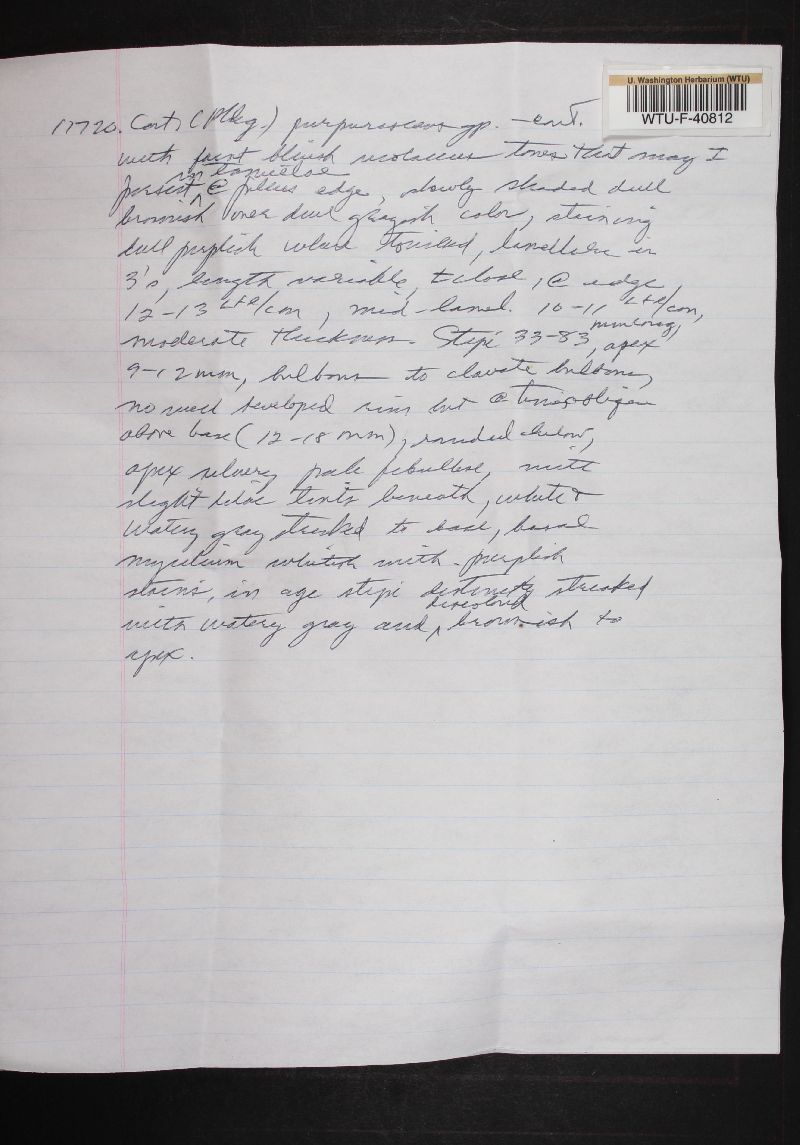 U. Washington Herbarium (WTU)
WTU-F-40812
17720. Cort, (Phleg.) purpurascens gp. — cont.
with faint bluish violaceous tones that may
in lamellae
persist @ pileus edge, slowly shaded dull
brownish over dull grayish color, staining
dull purplish when bruised, lamellulae in
3's, length variable, ± close, @ edge
12-13 L+l/cm, mid-lamel. 10-11 L+l/cm,
moderate thickness. Stipe 33-83 mm long, apex
9-12 mm, bulbous to clavate bulbous,
no well developed rim but @ times oblique
above base (12-18 mm), rounded below,
apex silvery pale fibrillose, with
slight lilac tints beneath, white &
watery gray streaked to base, basal
mycelium whitish with purplish
stains, in age stipe distinctly streaked
with watery gray and discolored brownish to
apex.